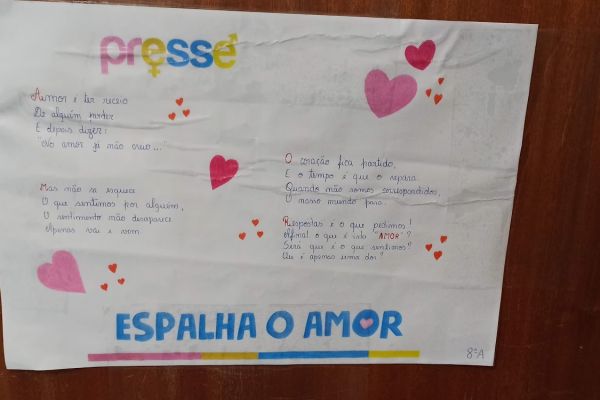 presse
Amor é ter receio
De alguém perder
E depois dizer:
"No amor já não creio..."
Mas não se esquece
O que sentimos por alguém,
O sentimento não desaparece
Apenas vai e vem
O coração fica partido,
E o tempo é que o repara.
Quando não somos correspondidos,
O nosso mundo para.
Respostas é o que pedimos!
Afinal o que é isto "AMOR"?
Será que é o que sentimos?
Ou é apenas uma dor?
ESPALHA O AMOR
8ºA